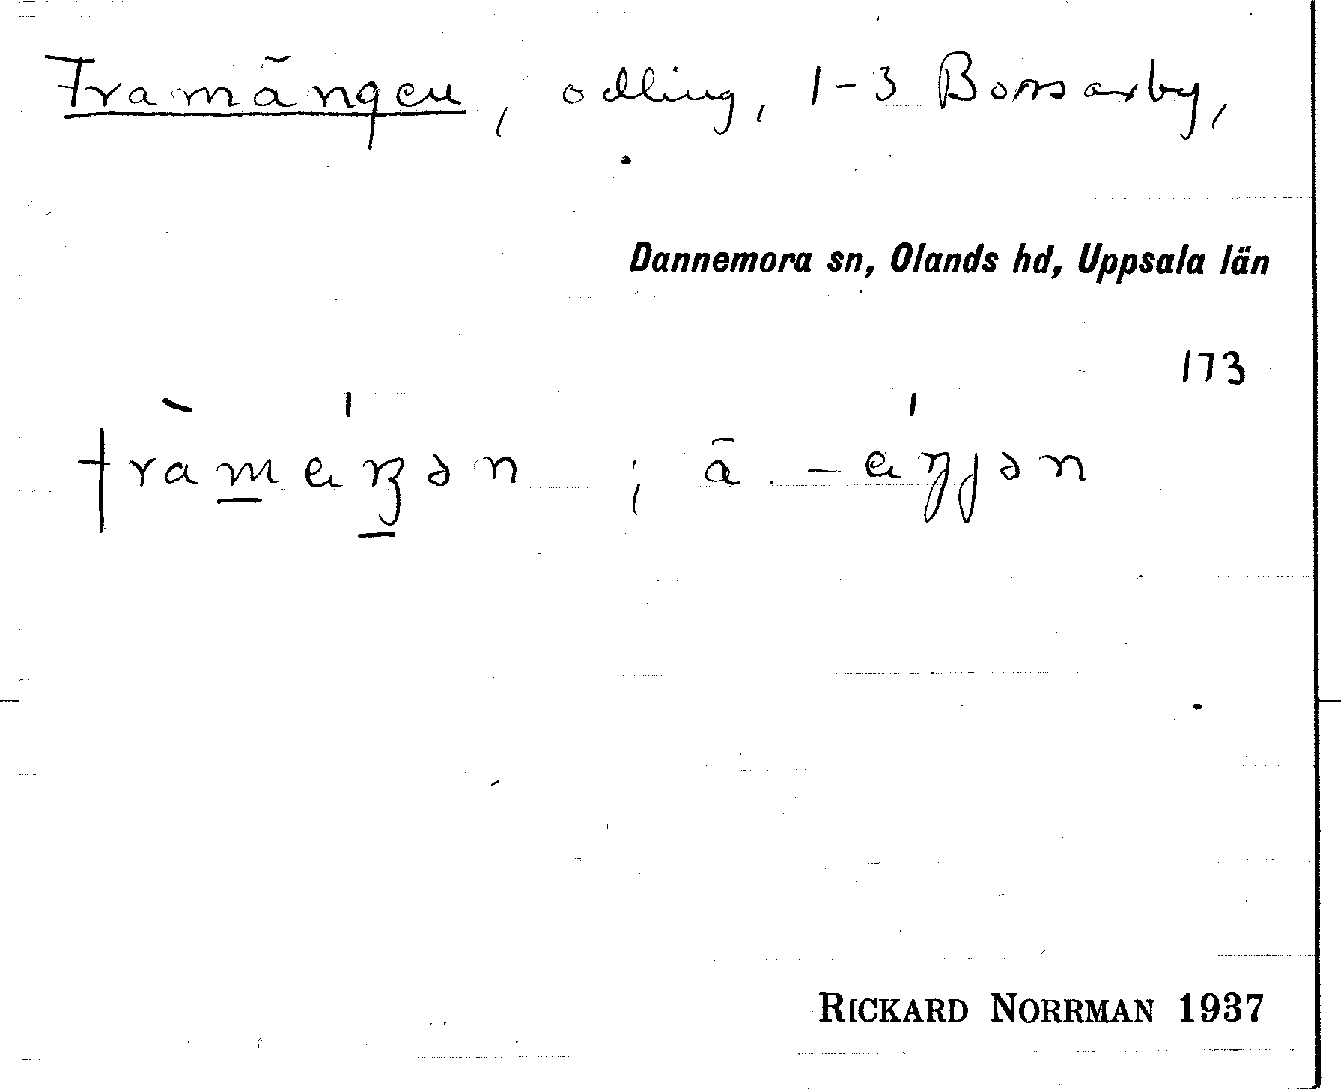 Framängen, odling, 1-3 Bomsarby,
Dannemora sn, Olands hd, Uppsala län
173
; ä -
RICKARD NORRMAN 1937